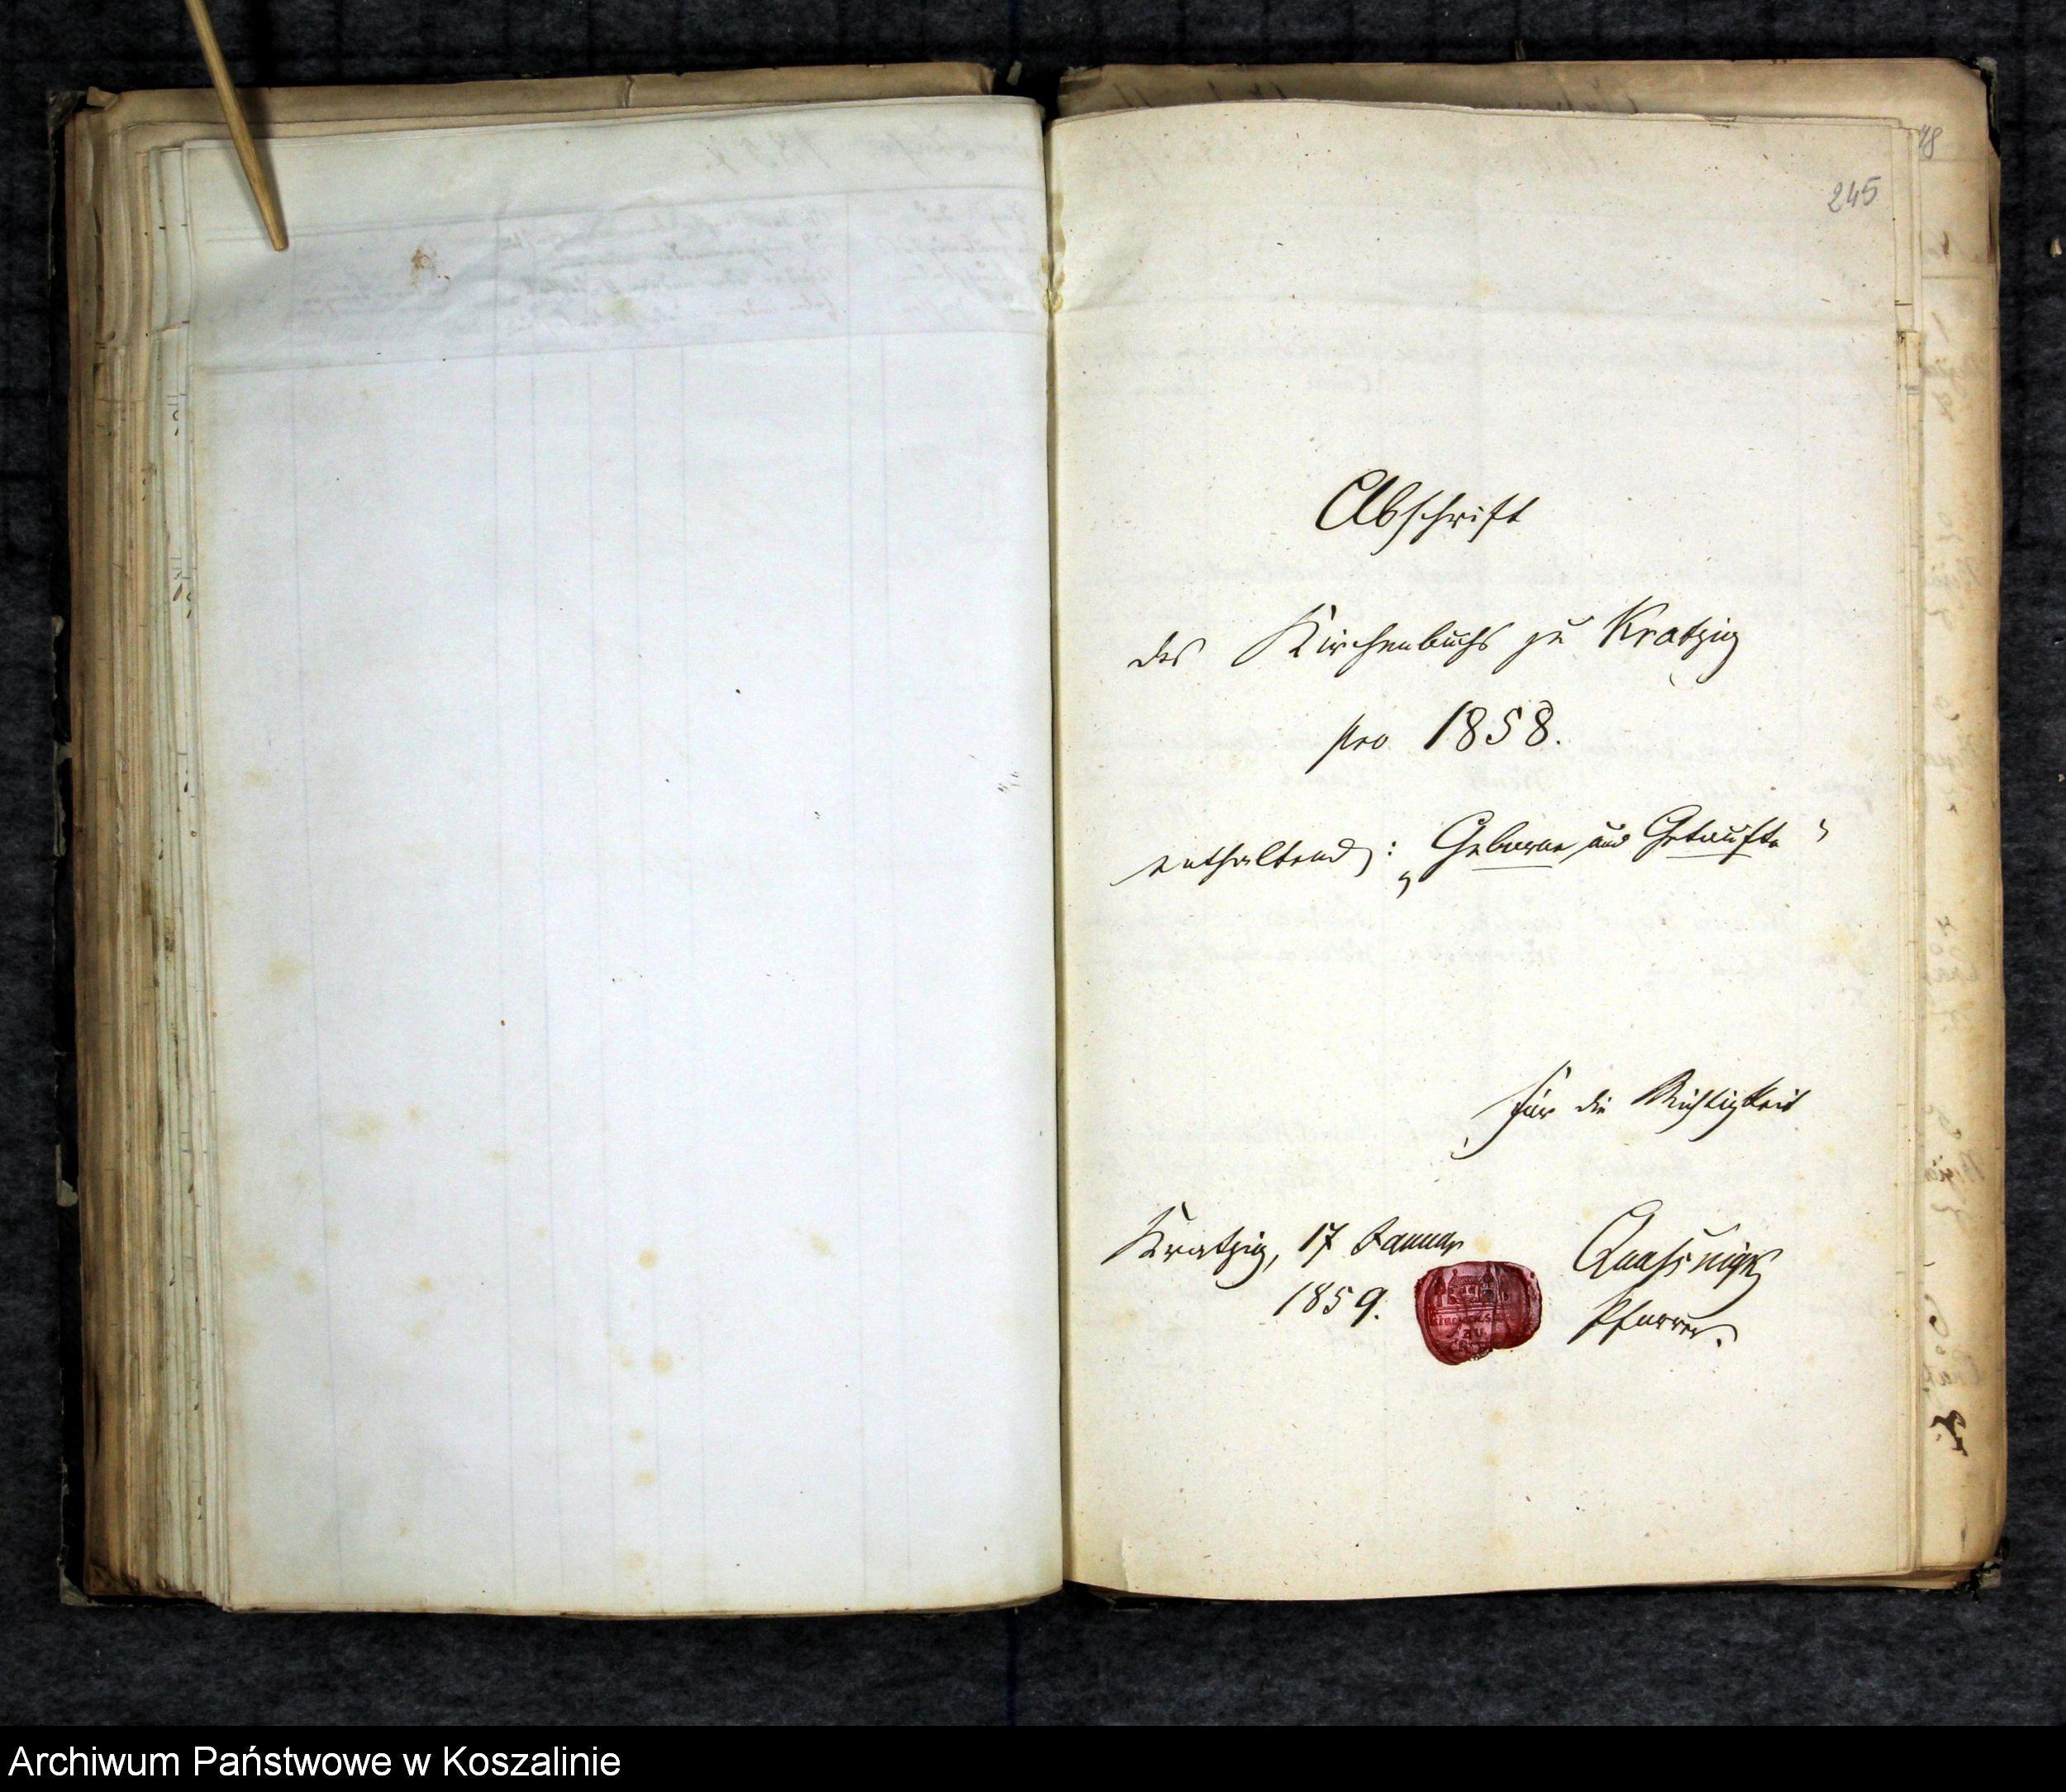 48
245
Abschrift
des Kirchenbuchs zu Kratzig
pro 1858.
enthaltend: „Geborne und Getaufte“
Für die Richtigkeit
Kratzig, 17 Januar
1859.
Pfarrer.
ZU
Archiwum Państwowe w Koszalinie